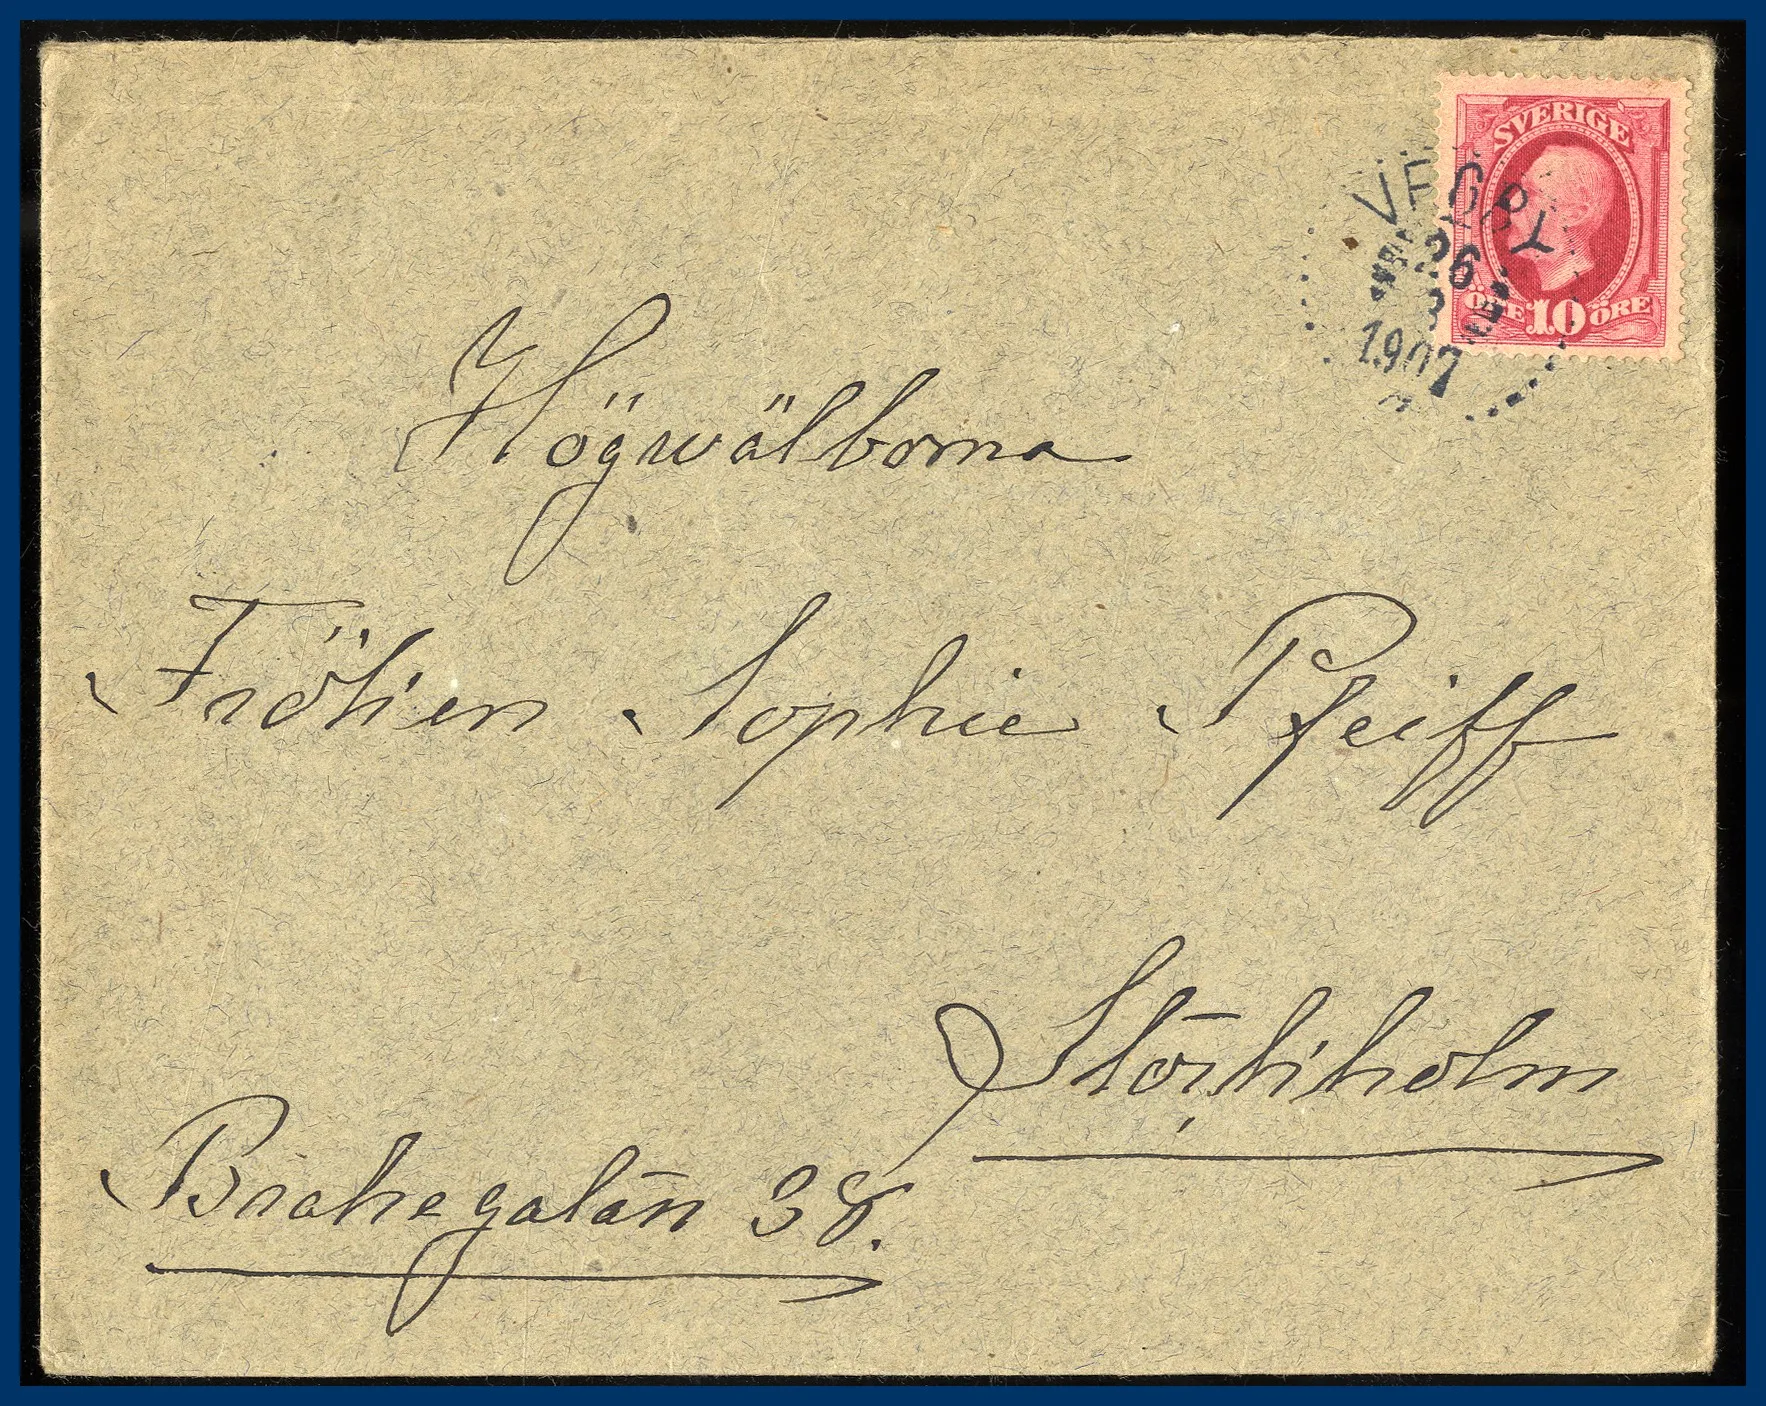 SVERIGE
ÖRE 10 ÖRE
VEGBY
26
3
1907
Högwälborna
Fröken Sophie Pfeiff
Stockholm
Brahegatan 38.